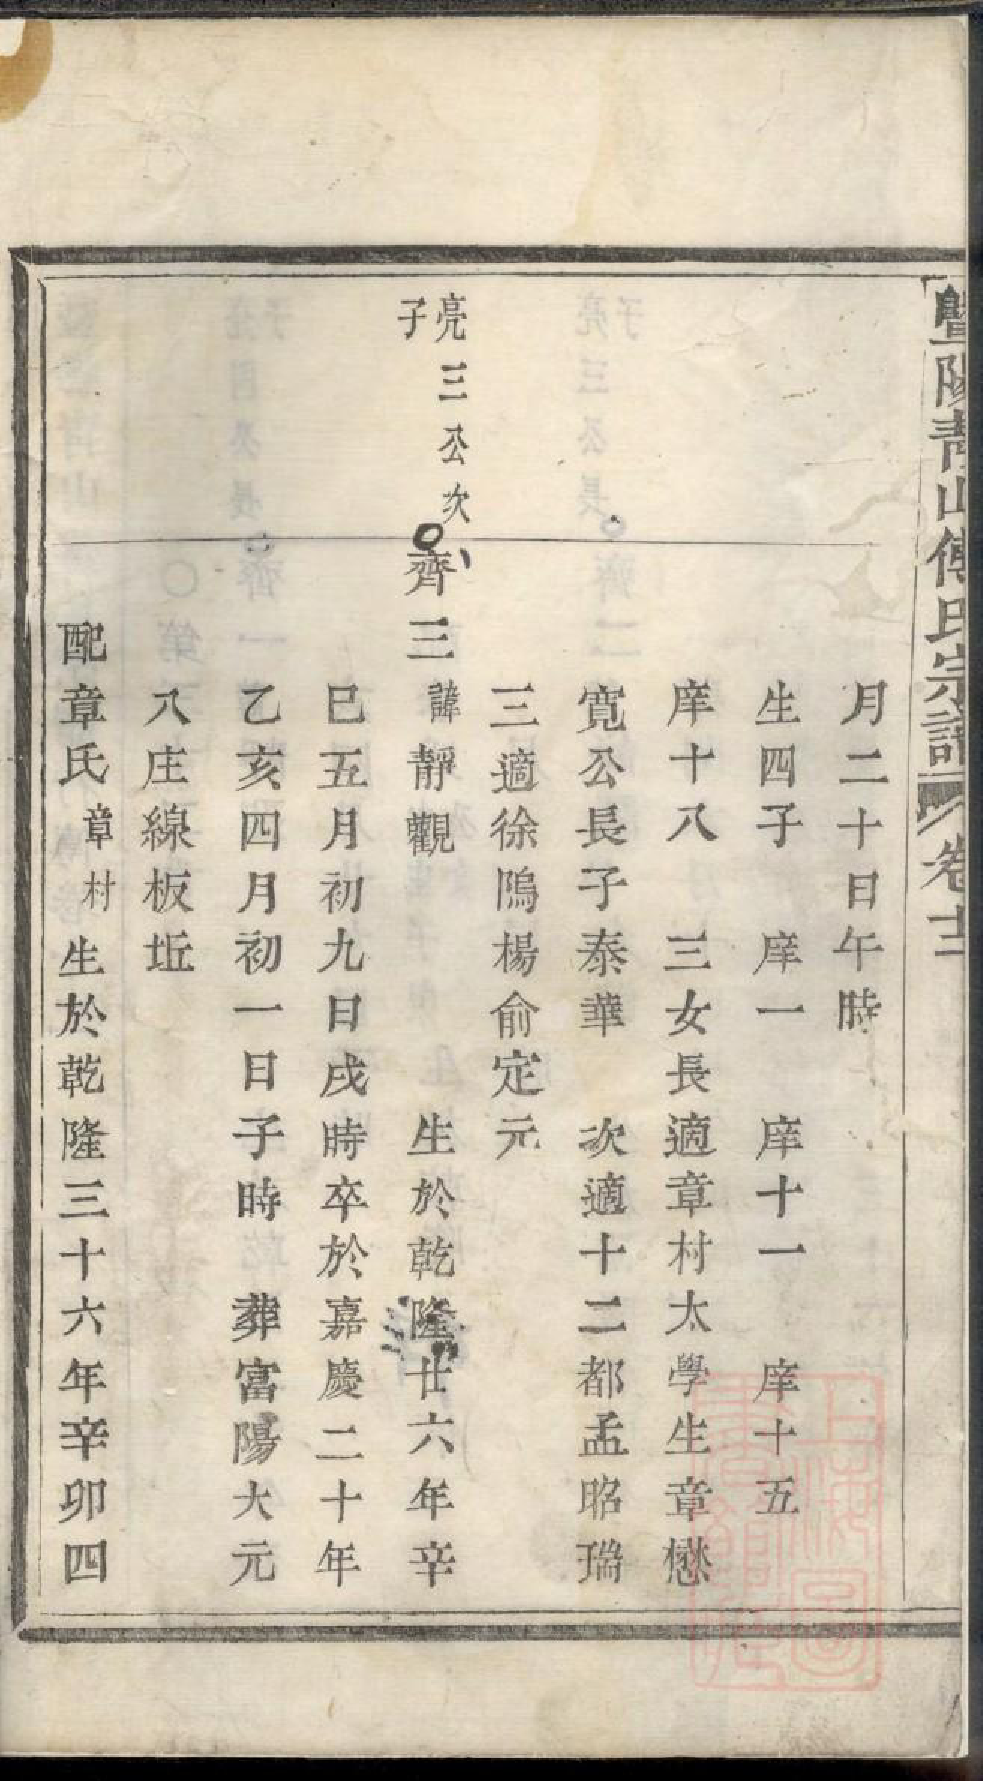 暨陽青山傅氏宗譜 卷十三
月二十日午時
生四子 庠一 庠十一 庠十五
庠十八 三女長適章村太學生章懋
寬公長子泰華 次適十二都孟昭瑞
三適徐隖楊俞定元
亮三公次
子
齊三諱靜觀 生於乾隆廿六年辛
巳五月初九日戌時卒於嘉慶二十年
乙亥四月初一日子時 葬富陽大元
八庄線板坵
配章氏章村生於乾隆三十六年辛卯四
上海圖
書館藏